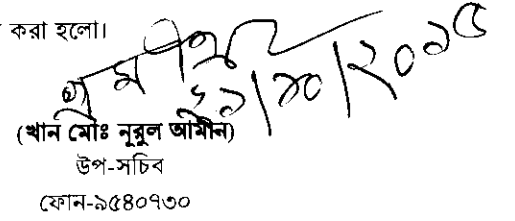 করা হলো।
২১/১০/২০১৫
(খান মোঃ নূরুল আমীন)
উপ-সচিব
ফোন-৯৫৪০৭৩০